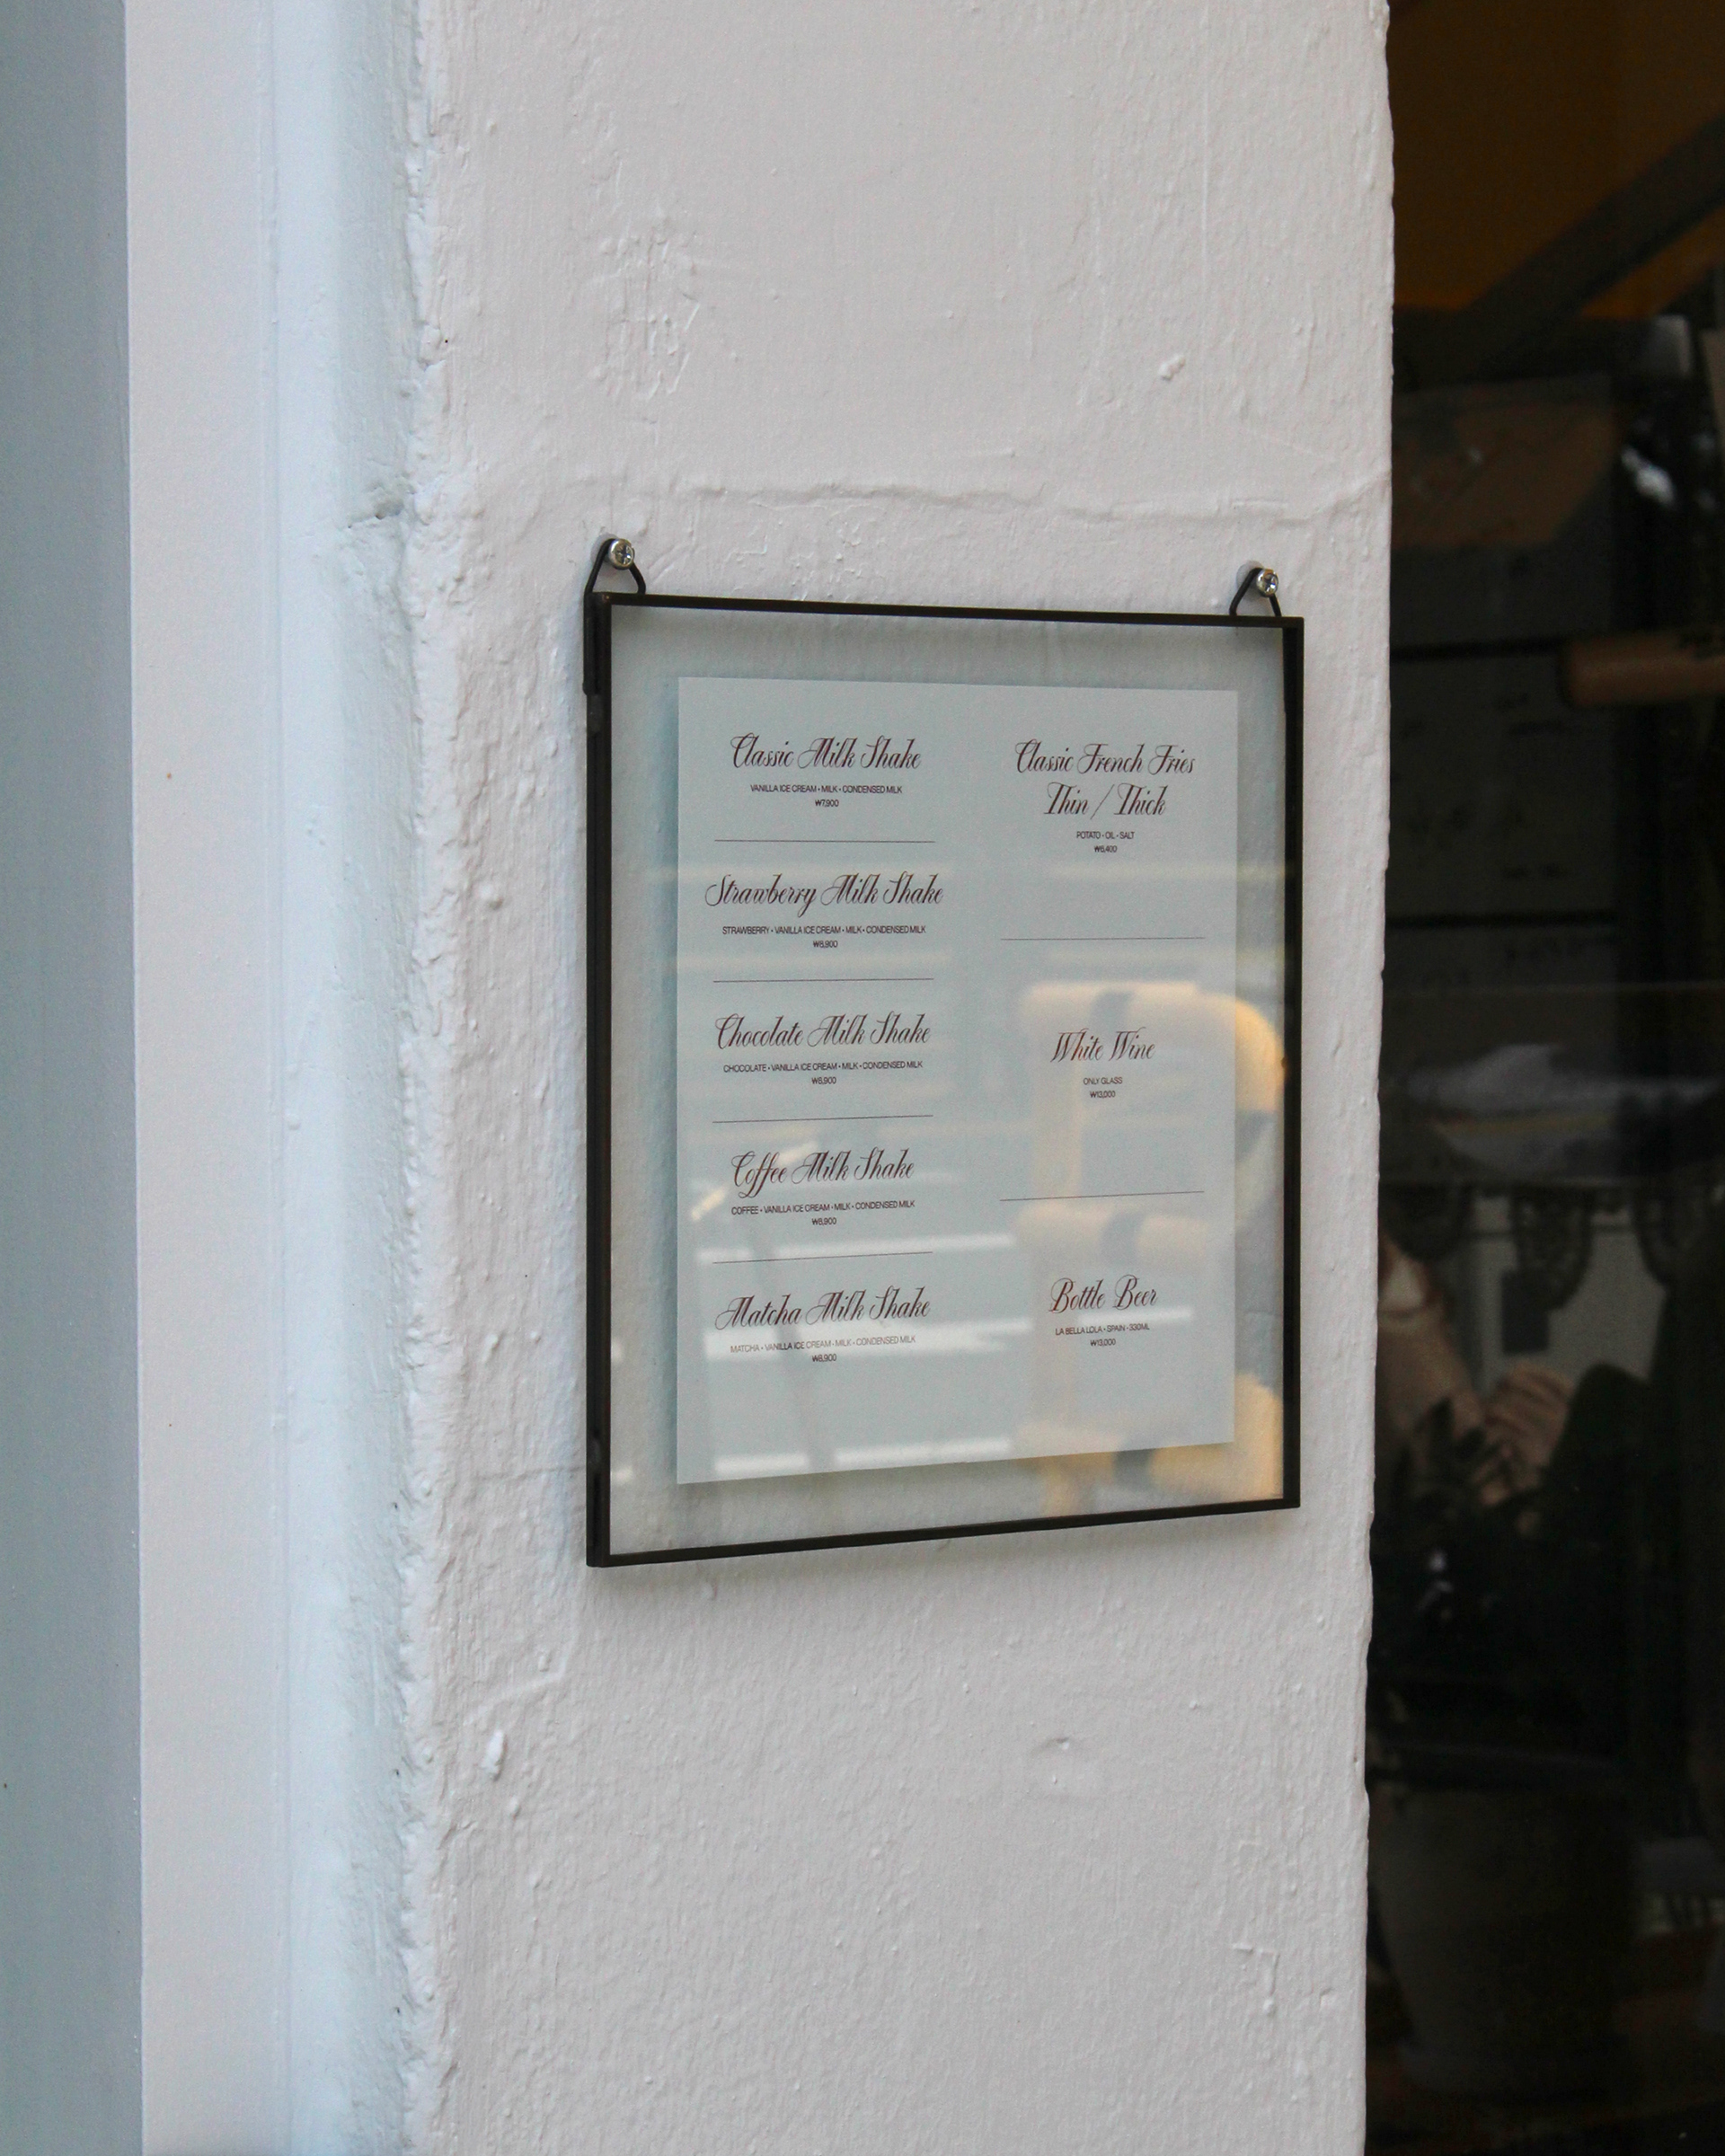 Classic Milk Shake
VANILLA ICE CREAM • MILK • CONDENSED MILK
₩7,900
Strawberry Milk Shake
STRAWBERRY • VANILLA ICE CREAM • MILK • CONDENSED MILK
₩8,900
Chocolate Milk Shake
CHOCOLATE • VANILLA ICE CREAM • MILK • CONDENSED MILK
₩8,900
Coffee Milk Shake
COFFEE • VANILLA ICE CREAM • MILK • CONDENSED MILK
₩8,900
Matcha Milk Shake
MATCHA • VANILLA ICE CREAM • MILK • CONDENSED MILK
₩8,900
Classic French Fries
Thin / Thick
POTATO • OIL • SALT
White Wine
ONLY GLASS
Bottle Beer
LA BELLA LOLA • SPAIN • 330ML
₩13,000